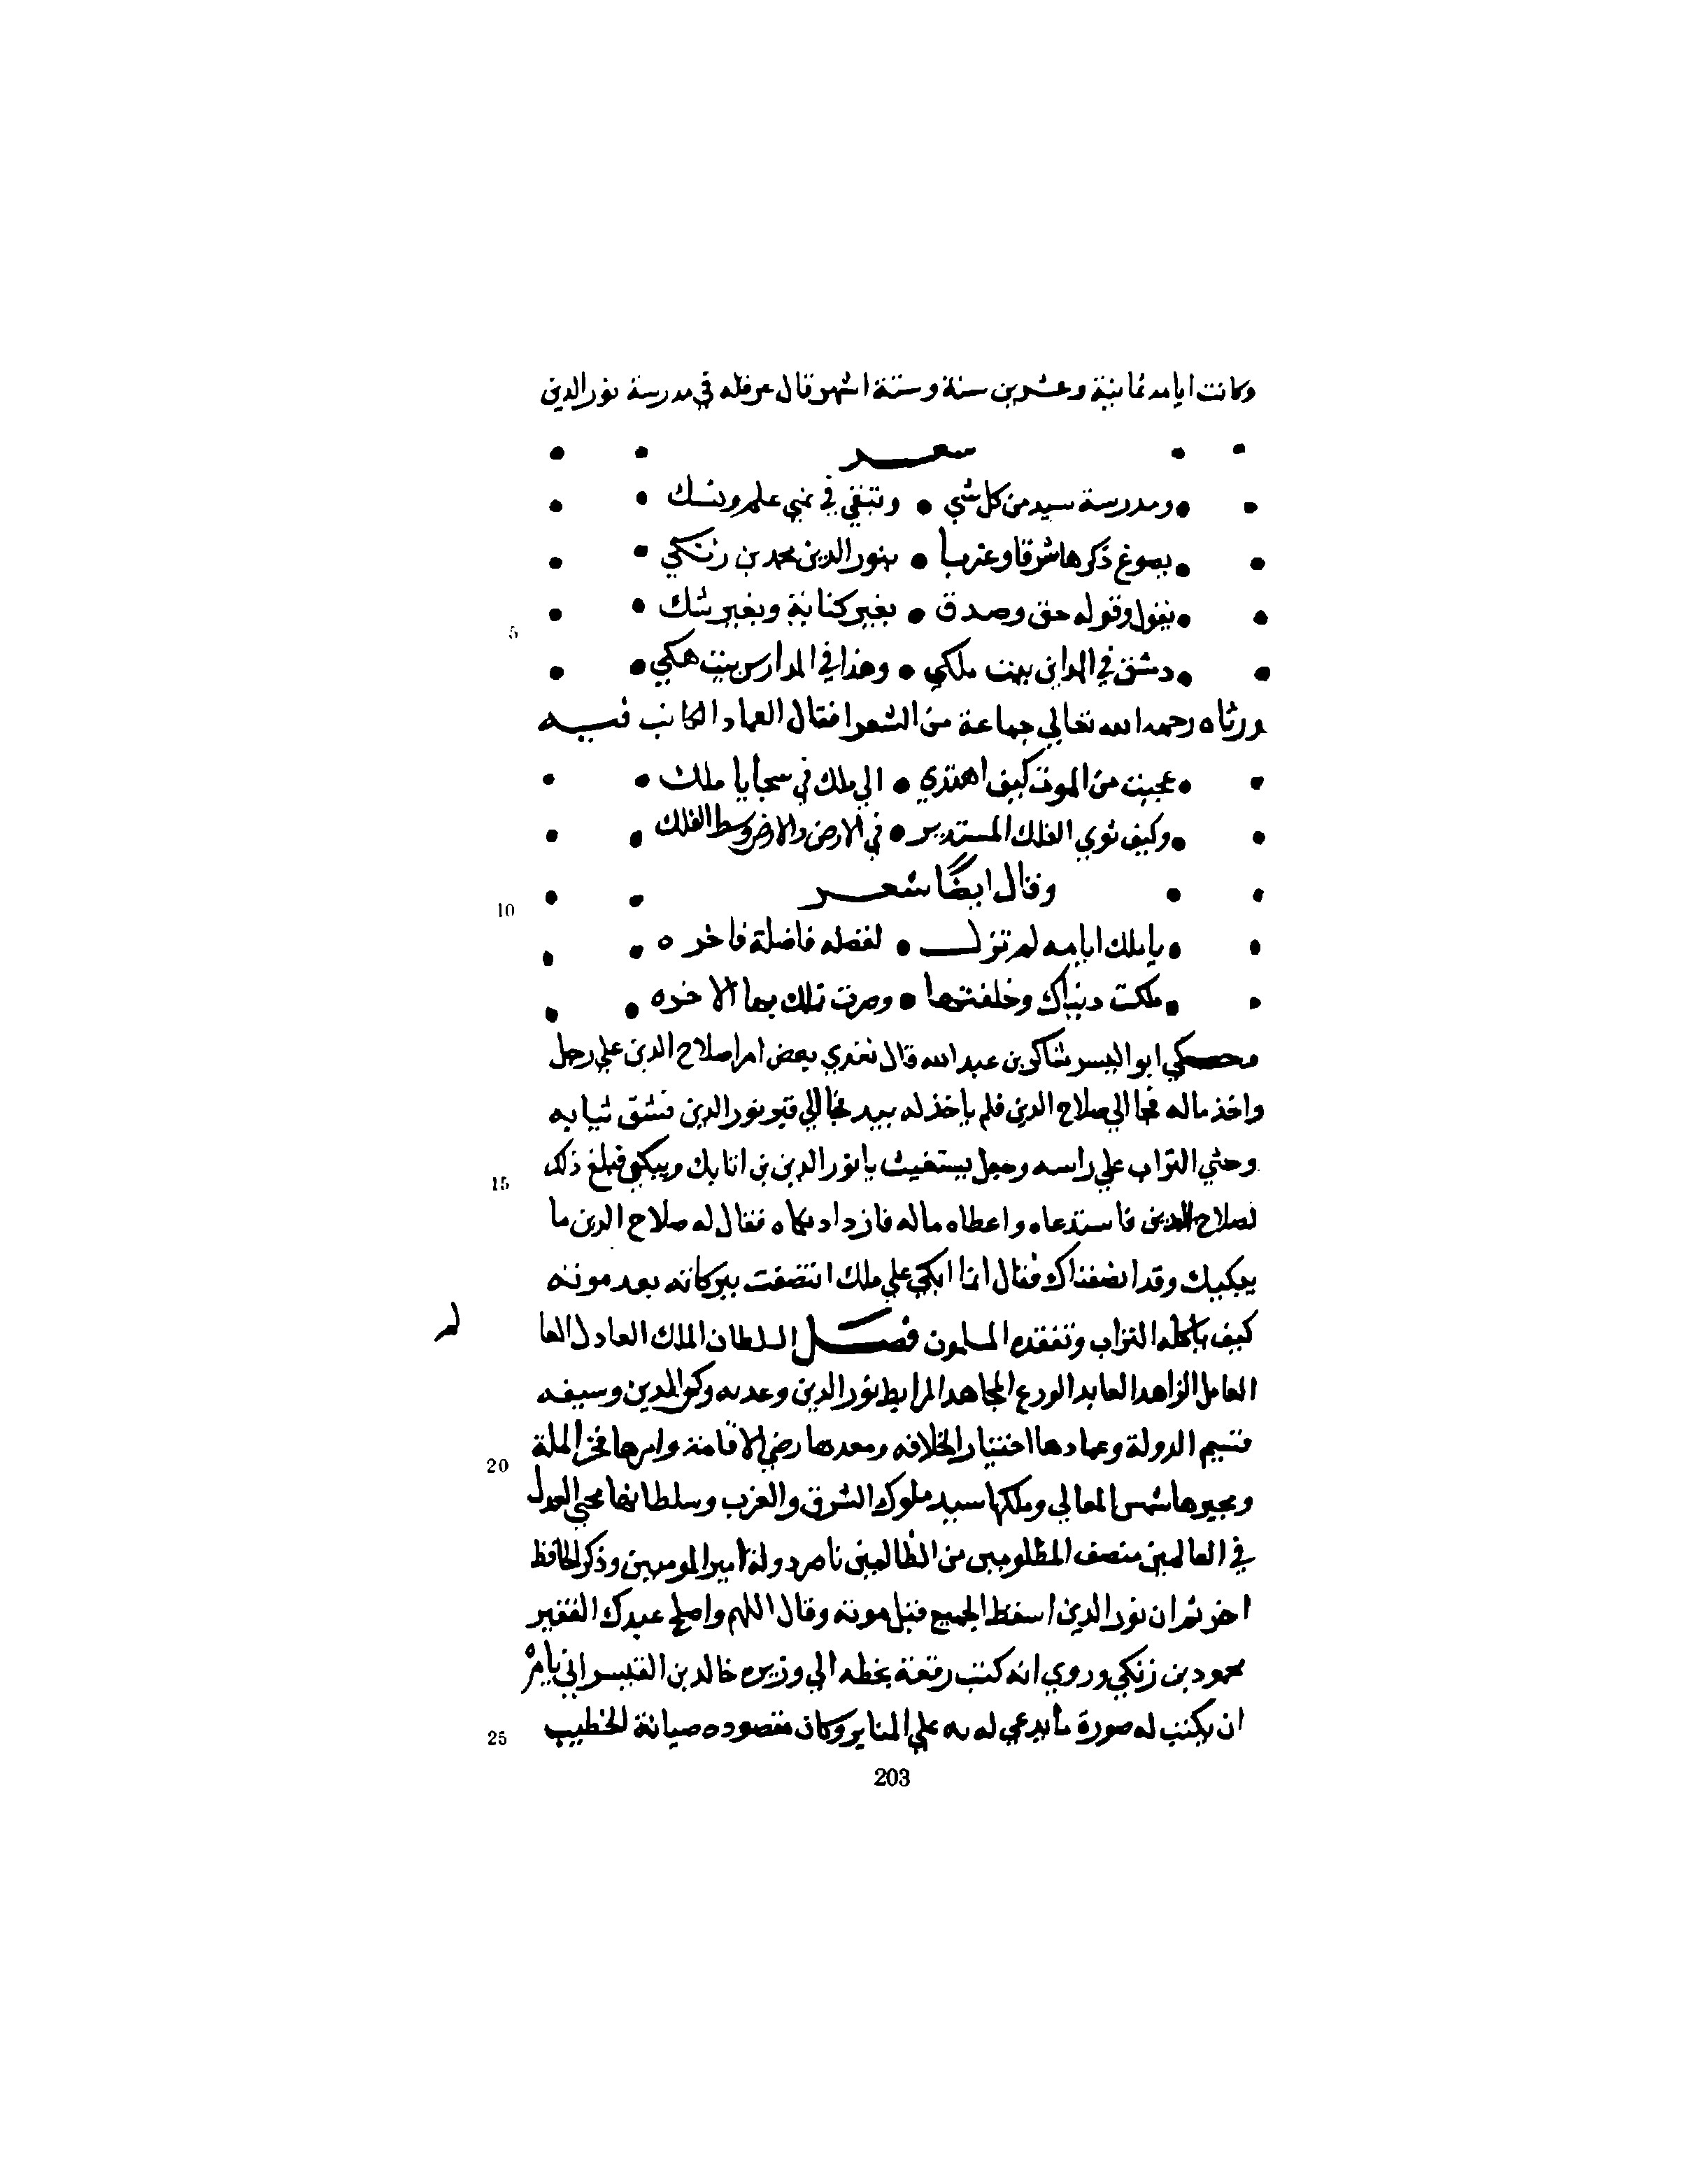 وكانت ايامه ثمانية وعشرين سنة وستة اشهر قال عرقله في مدرسة نور الدين
شعر
ومدرسة سيد من كل شي • وتبقي في علم ونسك
يضوع ذكرها شرقا وغربا • بنور الدين محمد بن زنكي
5
يقول وقوله حق وصدق • بغير كناية وبغير شك
دمشق في المداين بيت ملكي • وهذا في المدارس بيت هكي
ورثاه رحمه الله تعالي جماعة من الشعرا فقال العماد الكاتب فيه
عجبت من الموت كيف اهتدي • الي ملك في سجايا ملك
وكيف ثوي الفلك المستدير • في الارض والارض وسط الفلك
وقال ايضًا شعر
10
يا ملك ايامه لم تزل • لفضله فاضلة فاخره
ملكت دنياك وخلفتها • وصرت تملك بها الاخره
وحكي ابو اليسر شاكر بن عبد الله قال تعدي بعض امرا صلاح الدين علي رجل
واخذ ماله فجا الي صلاح الدين فلم ياخذ له بيد فجا الي قبر نور الدين فشق ثيابه
وحثي التراب علي راسه وجعل يستغيث يا نور الدين بن اتابك ويبكي فبلغ ذلك
15
لصلاح الدين فاستدعاه واعطاه ماله فازداد بكاه فقال له صلاح الدين ما
يبكيك وقد انصفناك فقال انما ابكي علي ملك انتصفت ببركاته بعد موته
كيف ياكله التراب وتفقده المسلمون فصل السلطان الملك العادل العا
لم
العامل الزاهد العابد الورع المجاهد المرابط نور الدين وعدته وركن الدين وسيفه
قسيم الدولة وعمادها اختيار الخلافه ومعدها رضي الاقامة واسرها فخر الملة
20
ومجيرها شمس المعالي وملكها سيد ملوك الشرق والغرب وسلطانها محيي العدل
في العالمين منصف المظلومين من الظالمين ناصر دولة امير المومنين وذكر الحافظ
اخر ثم ان نور الدين اسقط الجميع قبل موته وقال اللهم واصلح عبدك الفقير
محمود بن زنكي وروي انه كتب رقعة بخطه الي وزيره خالد بن القيسراني يامره
ان يكتب له صورة ما يدعي له به علي المنابر وكان مقصوده صيانة الخطيب
25
203